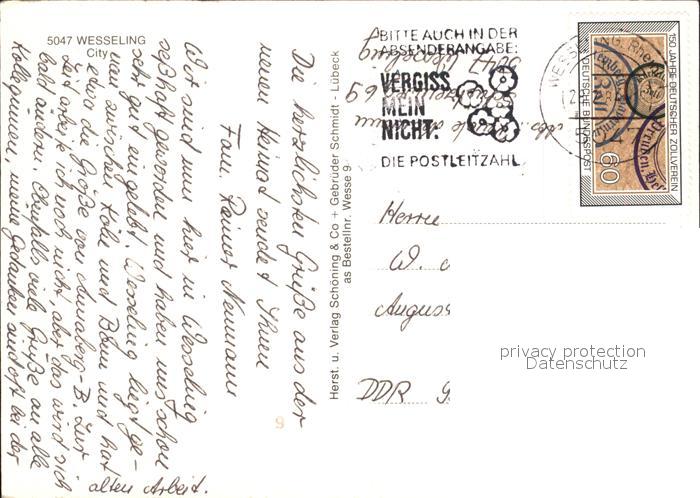 5047 WESSELING
City
Die herzlichsten Grüße aus der
neuen Heimat sendet Ihnen
Fam. Rainer Neumann
Wir sind nun hier in Wesseling
seßhaft geworden und haben uns schon
sehr gut eingelebt. Wesseling liegt ge-
nau zwischen Köln und Bonn und hat
etwa die Größe von Annaberg-B. Zur
Zeit arbeite ich noch nicht, aber das wird sich
bald ändern. Ebenfalls viele Grüße an alle
Kolleginnen, meine Gedanken sind oft bei der
alten Arbeit.
Herst. u. Verlag Schöning & Co + Gebrüder Schmidt - Lübeck
as Bestellnr. Wesse 9
9
BITTE AUCH IN DER
ABSENDERANGABE:
VERGISS
MEIN
NICHT:
DIE POSTLEITZAHL
5047 Wesseling
WESSELING
150 JAHRE DEUTSCHER ZOLLVEREIN
DEUTSCHE BUNDESPOST
60
Herrn
W.
August
DDR 9
privacy protection
Datenschutz